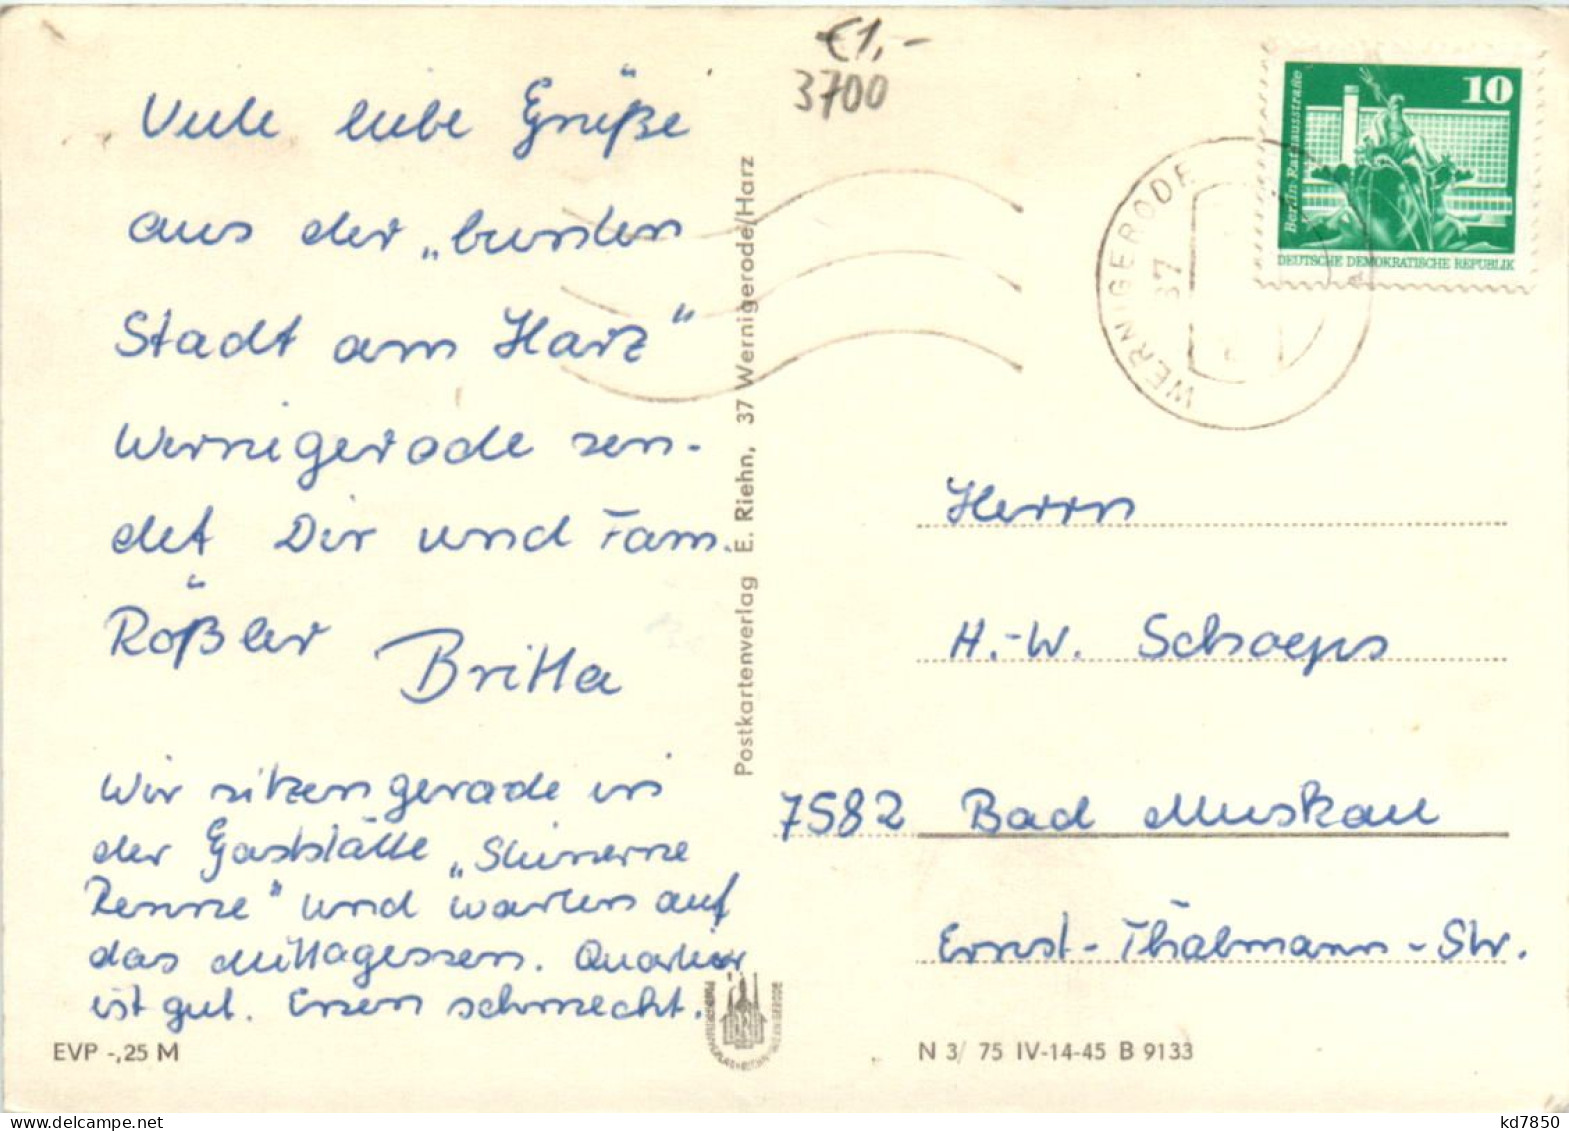 Viele liebe Grüße
aus der „bunten
Stadt am Harz"
Wernigerode sen-
det Dir und Fam.
Rößler Britta
Wir sitzen gerade in
der Gaststätte „Steinerne
Renne" und warten auf
das Mittagessen. Quartier
ist gut. Essen schmeckt.
EVP -,25 M
Postkartenverlag E. Riehn, 37 Wernigerode/Harz
€1,-
3700
WERNIGERODE
37
10
Berlin-Rathausstraße
DEUTSCHE DEMOKRATISCHE REPUBLIK
Herrn
H.-W. Schoeps
7582 Bad Muskau
Ernst-Thälmann-Str.
N 3/ 75 IV-14-45 B 9133
www.delcampe.net
kd7850